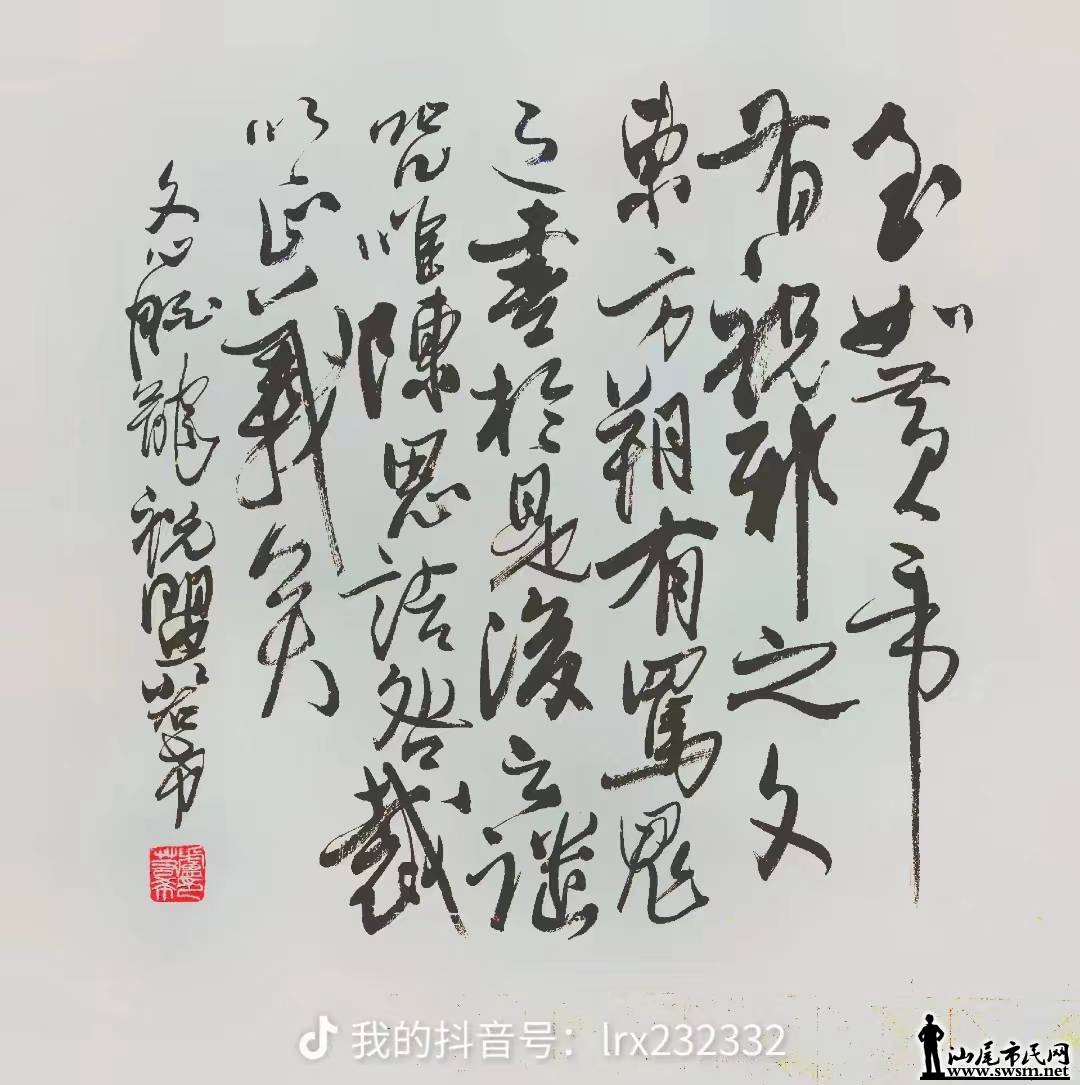 至如黄帝
有祝邪之文
東方朔有罵鬼
之書於是後之譴
呪唯陳思誥咎裁
以正義矣
文心雕龍祝盟若希
我的抖音号：lrx232332
汕尾市民网
www.swsm.net